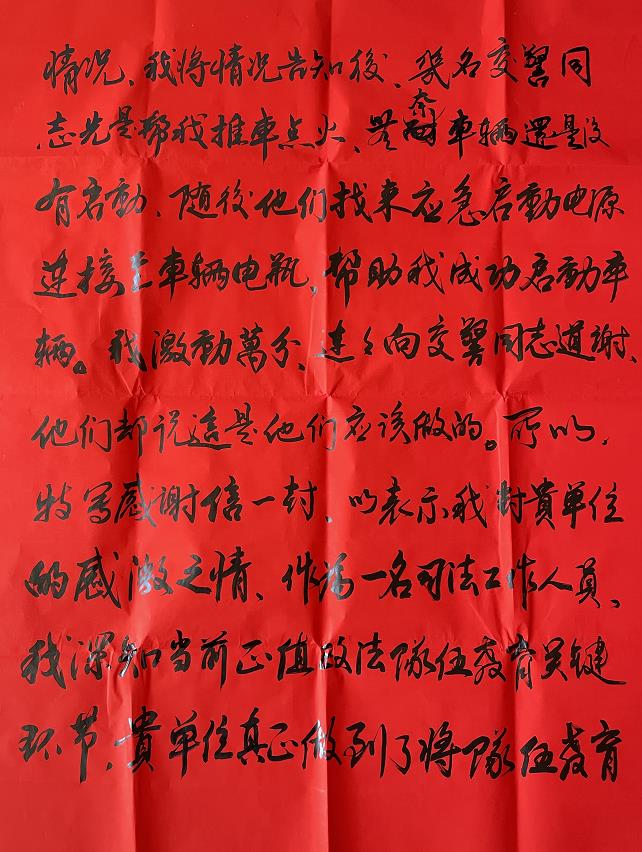 情况、我将情况告知後、幾名交警同
志先是帮我推車点火、無奈車辆還是没
有启動、随後他们找来应急启動电源
连接至車辆电瓶,帮助我成功启動車
辆。我激動萬分、連々向交警同志道謝、
他们却说這是他们应该做的。所以,
特写感谢信一封、以表示我对貴單位
的感激之情、作為一名司法工作人員、
我深知当前正值政法隊伍教育关键
环节、貴單位真正做到了将隊伍教育